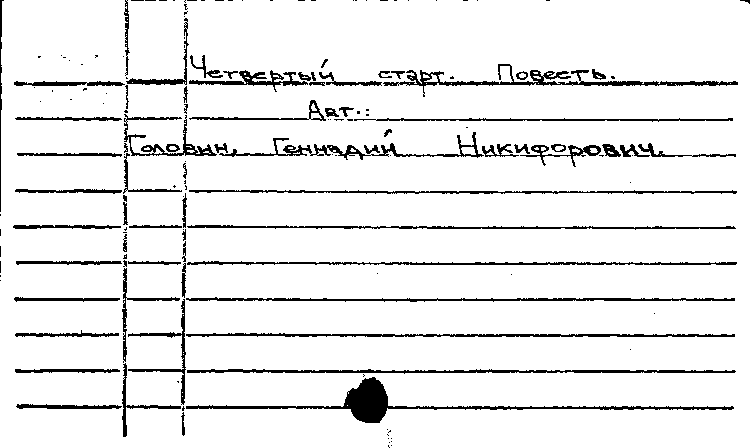 Четвертый старт. Повесть.
Авт.:
Головин, Геннадий Никифорович.